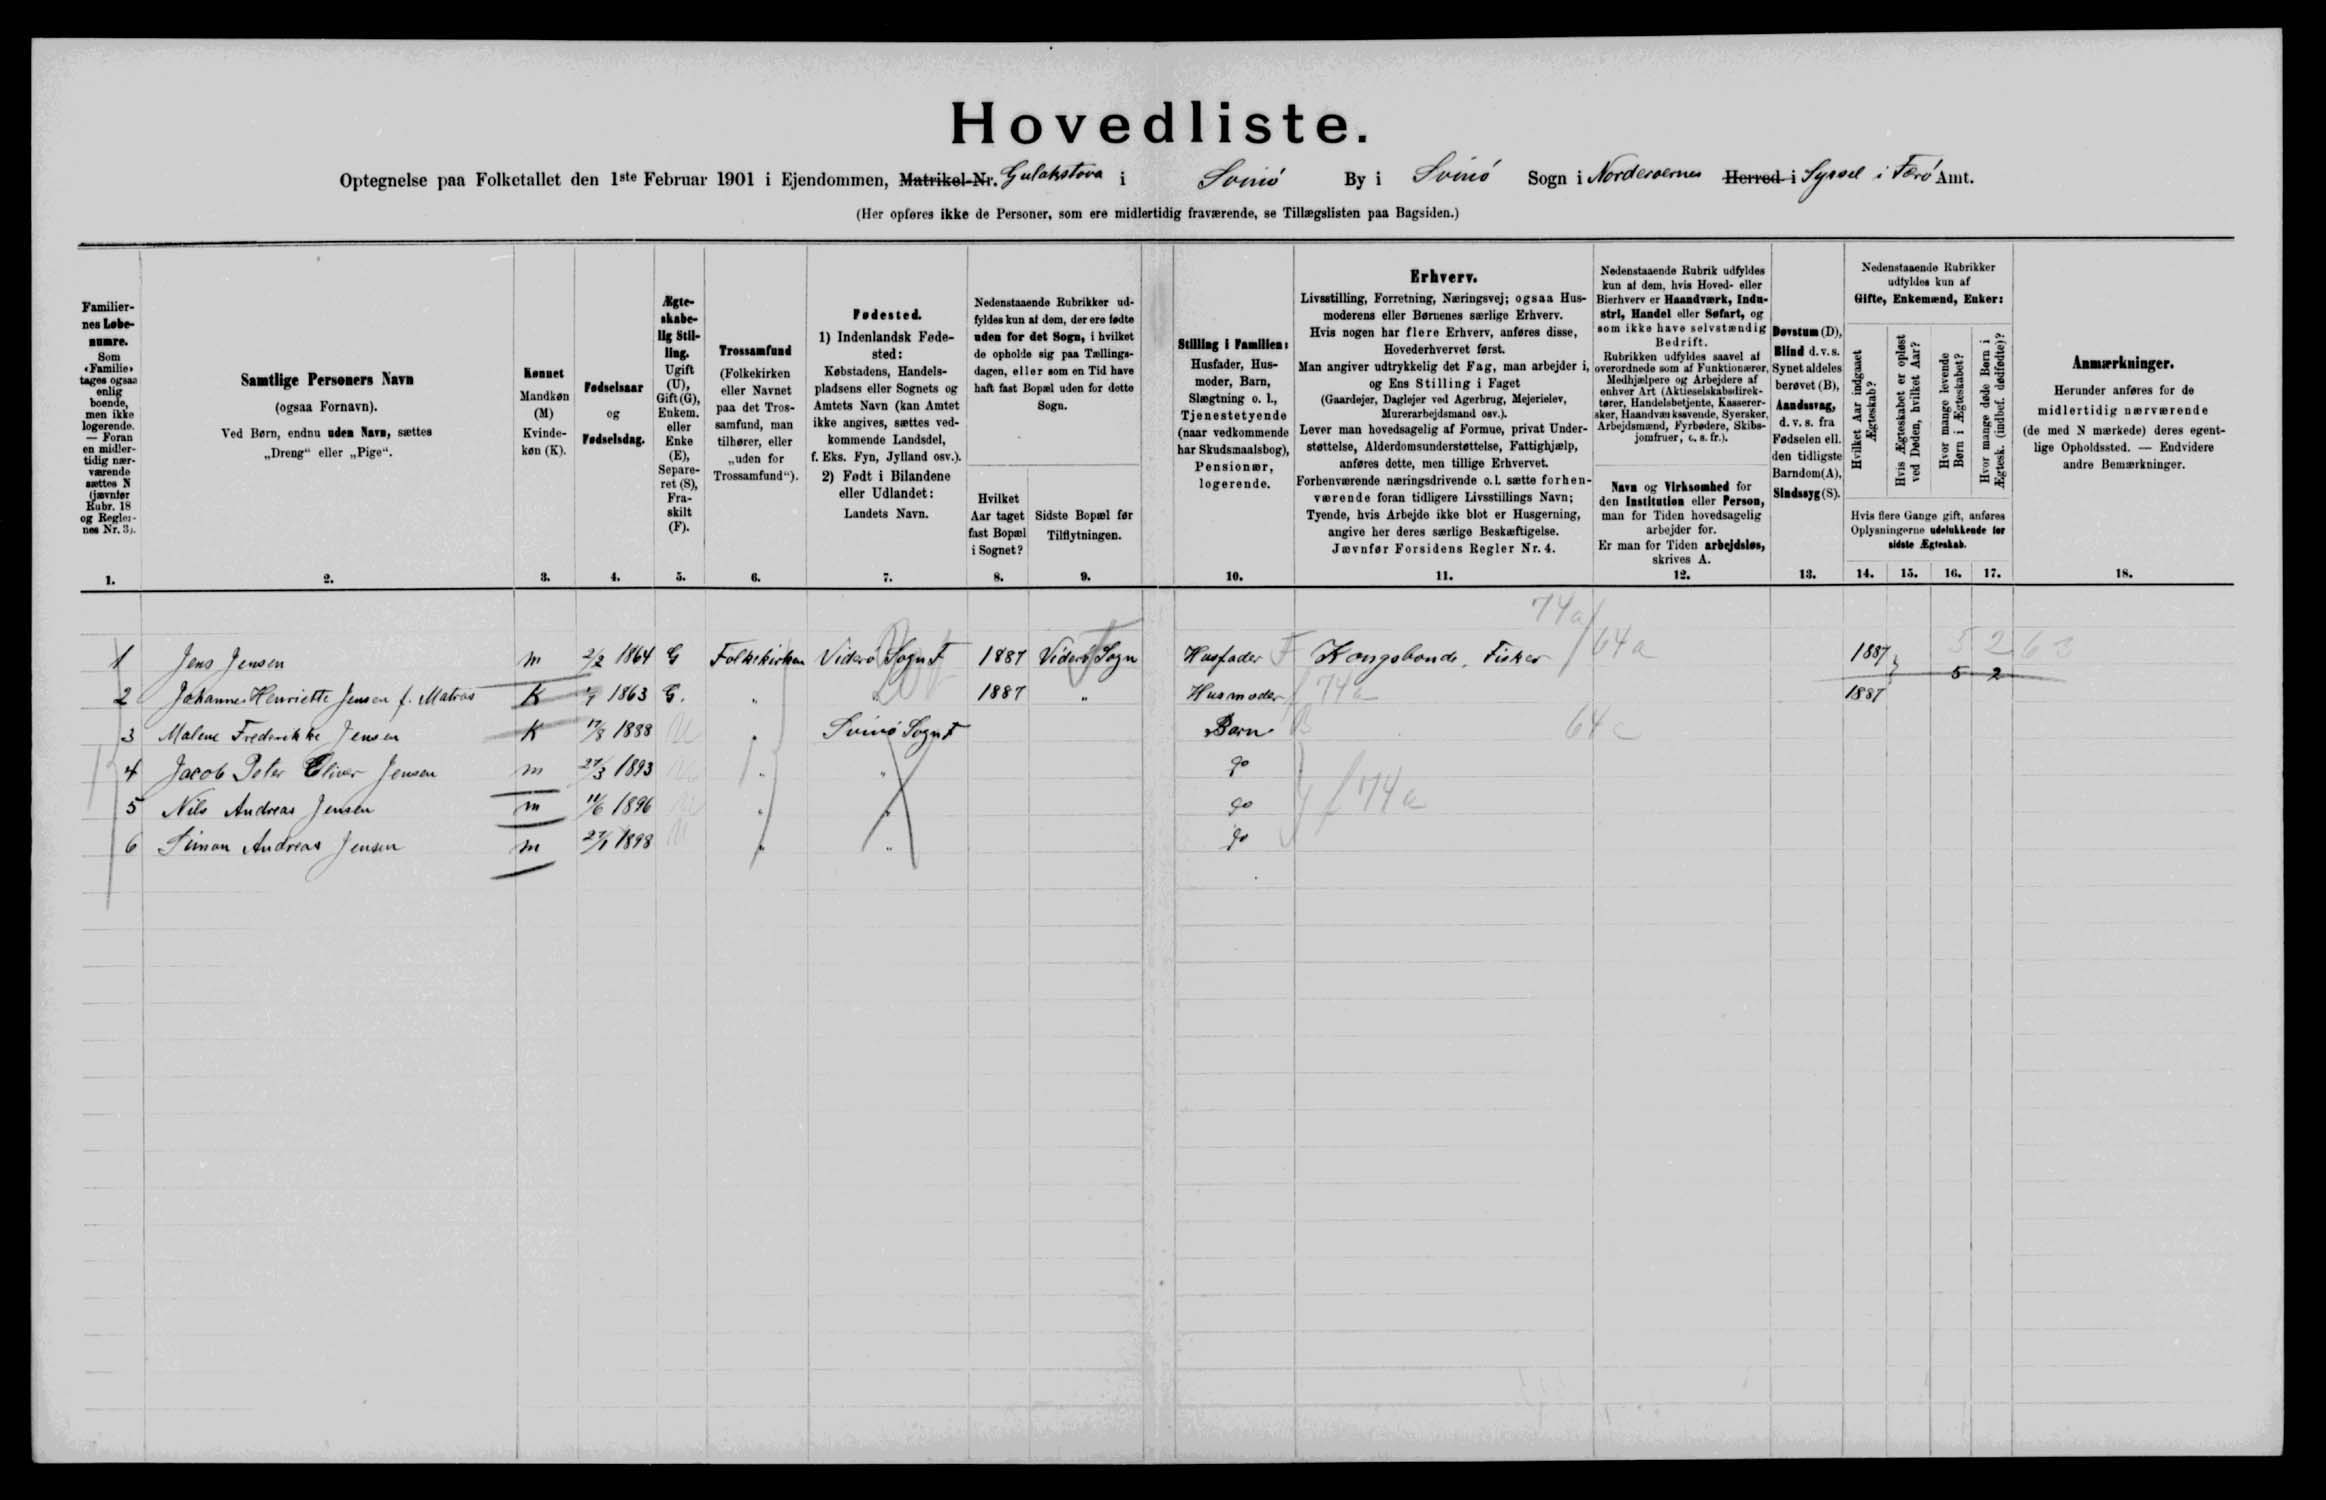 Hovedliste.
Optegnelse paa Folketallet den 1ste Februar 1901 i Ejendommen, Matrikel-Nr. Gulakstova i Svinö By i Svinö Sogn i Norderoernes Herred i Syssel i Færö Amt.
(Her opføres ikke de Personer, som ere midlertidig fraværende, se Tillægslisten paa Bagsiden.)
Familier-
nes Løbe-
numre.
Som
«Familie»
tages ogsaa
enlig
boende,
men ikke
logerende.
— Foran
en midler-
tidig nær-
værende
sættes N
(jævnfør
Rubr. 18
og Regler-
nes Nr. 3).
1.
Samtlige Personers Navn
(ogsaa Fornavn).
Ved Børn, endnu uden Navn, sættes
„Dreng“ eller „Pige“.
2.
Kønnet
Mandkøn
(M)
Kvinde-
køn (K).
3.
Fødselsaar
og
Fødselsdag.
4.
Ægte-
skabe-
lig Stil-
ling.
Ugift
(U),
Gift (G),
Enkem.
eller
Enke
(E),
Separe-
ret (S),
Fra-
skilt
(F).
5.
Trossamfund
(Folkekirken
eller Navnet
paa det Tros-
samfund, man
tilhører, eller
„uden for
Trossamfund“).
6.
Fødested.
1) Indenlandsk Føde-
sted:
Købstadens, Handels-
pladsens eller Sognets og
Amtets Navn (kan Amtet
ikke angives, sættes ved-
kommende Landsdel,
f. Eks. Fyn, Jylland osv.).
2) Født i Bilandene
eller Udlandet:
Landets Navn.
7.
Nedenstaaende Rubrikker ud-
fyldes kun af dem, der ere fødte
uden for det Sogn, i hvilket
de opholde sig paa Tællings-
dagen, eller som en Tid have
haft fast Bopæl uden for dette
Sogn.
Hvilket
Aar taget
fast Bopæl
i Sognet?
8.
Sidste Bopæl før
Tilflytningen.
9.
Stilling i Familien:
Husfader, Hus-
moder, Barn,
Slægtning o. l.,
Tjenestetyende
(naar vedkommende
har Skudsmaalsbog),
Pensionær,
logerende.
10.
Erhverv.
Livsstilling, Forretning, Næringsvej; ogsaa Hus-
moderens eller Børnenes særlige Erhverv.
Hvis nogen har flere Erhverv, anføres disse,
Hovederhvervet først.
Man angiver udtrykkelig det Fag, man arbejder i,
og Ens Stilling i Faget
(Gaardejer, Daglejer ved Agerbrug, Mejerielev,
Murerarbejdsmand osv.).
Lever man hovedsagelig af Formue, privat Under-
støttelse, Alderdomsunderstøttelse, Fattighjælp,
anføres dette, men tillige Erhvervet.
Forhenværende næringsdrivende o. l. sætte forhen-
værende foran tidligere Livsstillings Navn;
Tyende, hvis Arbejde ikke blot er Husgerning,
angive her deres særlige Beskæftigelse.
Jævnfør Forsidens Regler Nr. 4.
11.
Nedenstaaende Rubrik udfyldes
kun af dem, hvis Hoved- eller
Bierhverv er Haandværk, Indu-
stri, Handel eller Søfart, og
som ikke have selvstændig
Bedrift.
Rubrikken udfyldes saavel af
overordnede som af Funktionærer,
Medhjælpere og Arbejdere af
enhver Art (Aktieselskabsdirek-
tører, Handelsbetjente, Kasserer-
sker, Haandværkssvende, Syersker,
Arbejdsmænd, Fyrbødere, Skibs-
jomfruer, o. s. fr.).
Navn og Virksomhed for
den Institution eller Person,
man for Tiden hovedsagelig
arbejder for.
Er man for Tiden arbejdsløs,
skrives A.
12.
Døvstum (D),
Blind d. v. s.
Synet aldeles
berøvet (B),
Aandssvag,
d. v. s. fra
Fødselen ell.
den tidligste
Barndom (A),
Sindssyg (S).
13.
Nedenstaaende Rubrikker
udfyldes kun af
Gifte, Enkemænd, Enker:
Hvilket Aar indgaaet
Ægteskab?
Hvis Ægteskabet er opløst
ved Døden, hvilket Aar?
Hvor mange levende
Børn i Ægteskabet?
Hvor mange døde Børn i
Ægtesk. (indbef. dødfødte)?
Hvis flere Gange gift, anføres
Oplysningerne udelukkende for
sidste Ægteskab.
14. 15. 16. 17.
Anmærkninger.
Herunder anføres for de
midlertidig nærværende
(de med N mærkede) deres egent-
lige Opholdssted. — Endvidere
andre Bemærkninger.
18.
74a
1 Jens Jensen m 2/2 1864 G Folkekirken Viderö Sogn F 1887 Viderö Sogn Husfader F Kongsbonde, Fisker 64a 1887 5 2
2 Johanne Henriette Jensen f. Matras K 1863 G. " " 1887 " Husmoder 74a 1887 5 2
3 Malene Frederikke Jensen K 17/8 1888 U " Svinö Sogn F Barn B 64
4 Jacob Peter Oliver Jensen m 27/3 1893 U " " do
5 Nils Andreas Jensen m 11/6 1896 U " " do f 74a
6 Simon Andreas Jensen m 27/1 1898 U " " do